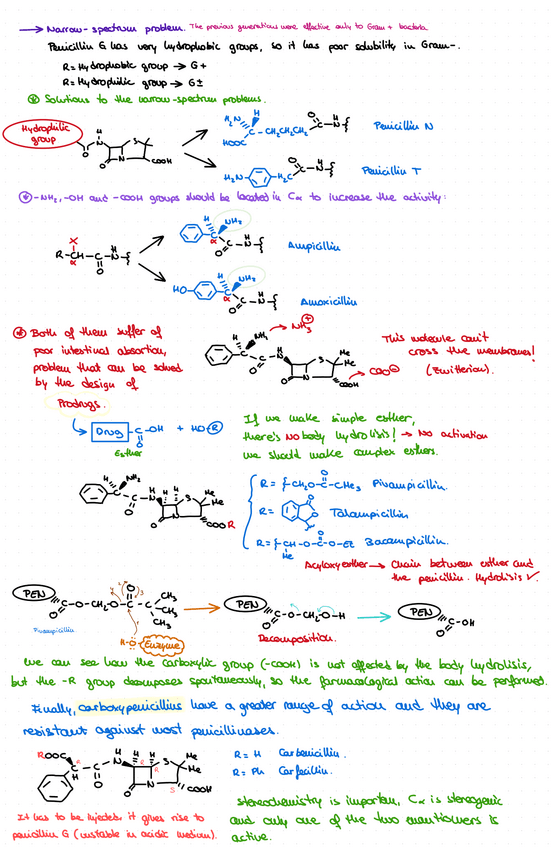 → Narrow-spectrum problem. The previous generations were effective only to Gram+ bacteria
Penicillin G has very hydrophobic groups, so it has poor solubility in Gram-.
R = Hydrophobic group → G+
R = Hydrophilic group → G±
* Solutions to the narrow-spectrum problems.
Hydrophilic
group
Penicillin N
Penicillin T
* -NH₂, -OH and -COOH groups should be located in Cα to increase the activity:
Ampicillin
Amoxicillin
* Both of them suffer of
poor intestinal absortion,
problem that can be solved
by the design of
Prodrugs.
This molecule can't
cross the membranes!
(Zwitterion).
Drug -C-OH + HO-R
Esther
If we make simple esther,
there's NO body hydrolisis! → No activation
we should make complex esthers.
R = CH₂O-C-CMe₃ Pivampicillin.
R = Talampicillin
R = CH-O-C-O-Et Bacampicillin.
Me
Acyloxyesther → Chain between esther and
the penicillin. Hydrolisis ✓.
PEN
PEN
PEN
Pivampicillin
H-O Enzyme
Decomposition.
We can see how the carboxylic group (-COOH) is not affected by the body hydrolisis,
but the -R group decomposes spontaneously, so the farmacological action can be performed.
Finally, carboxypenicillins have a greater range of action and they are
resistant against most penicillinases.
R = H Carbenicillin.
R = Ph Carfecillin.
It has to be injected, it gives rise to
penicillin G (unstable in acidic medium).
stereochemistry is importan, Cα is stereogenic
and only one of the two enantiomers is
active.